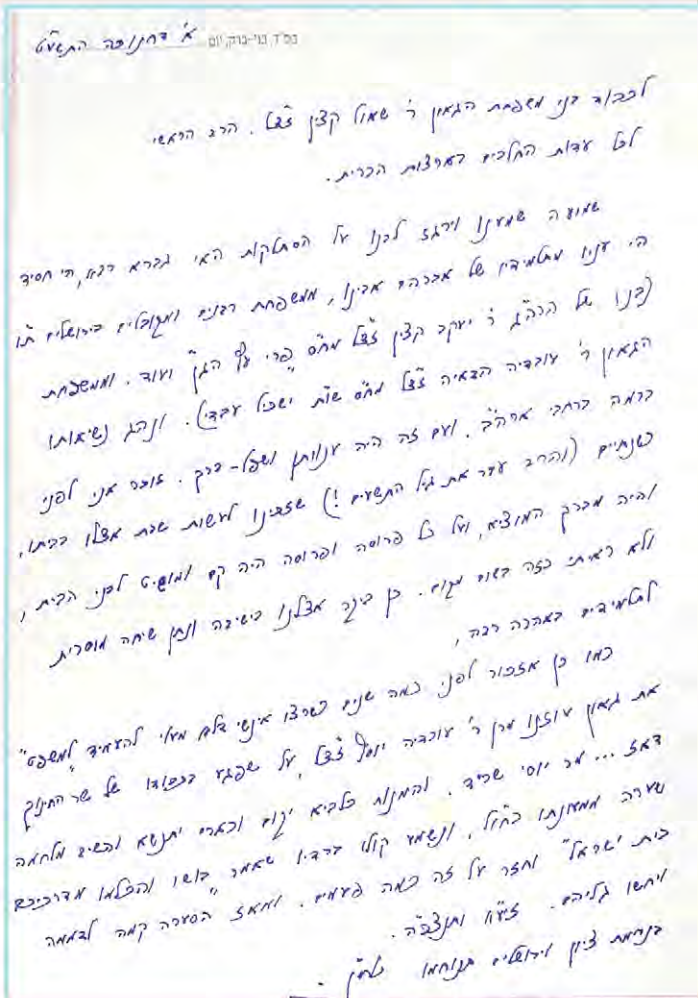 בס"ד, בני-ברק, יום א' דחנוכה התשע"ט
לכבוד בני משפחת הגאון ר' שאול קצין זצ"ל. הרב הראשי
לכל עדות החלבים בארצות הברית.
שמועה שמענו וירגז לבנו על הסתלקות האי גברא רבא, הי חסיד
הי עניו מתלמידיו של אברהם אבינו, ממשפחת רבנים ומקובלים בירושלים ת"ו
(בנו של הרה"ג ר' יעקב קצין זצ"ל מח"ס "פרי עץ הגן" ועוד. וממשפחת
הגאון ר' עובדיה הדאיה זצ"ל מח"ס שו"ת ישכיל עבדי). ונהג נשיאותו
ברמה ברחבי ארה"ב. ועם זה היה ענוותן ושפל-ברך. זוכר אני לפני
כשנתיים (והרב עבר את גיל התשעים!) שזכינו לעשות שבת אצלו בביתו,
והיה מברך המוציא, ועל כל פרוסה ופרוסה היה קם ומושיט לבני הבית,
ולא ראיתי כזה בשום מקום. כן ביקר אצלנו בישיבה ונתן שיחה מוסרית
לתלמידים באהבה רבה,
כמו כן אזכור לפני כמה שנים כשרצו אינשי דלא מעלי להעמיד "למשפט"
את גאון עוזנו מרן ר' עובדיה יוסף זצ"ל, על שפגע בכבודו של שר החינוך
דאז... מר יוסי שריד. והמנוח כלביא יקום וכארי יתנשא והשיב מלחמה
שערה ממעונתו בחו"ל, ונשמע קולו ברדיו שאמר "בושו והכלמו מדרכיכם
בית ישראל" וחזר על זה כמה פעמים. ומאז הסערה קמה לדממה
ויחשו גליהם. זיע"א ותנצב"ה.
בנחמת ציון וירושלים תנוחמו